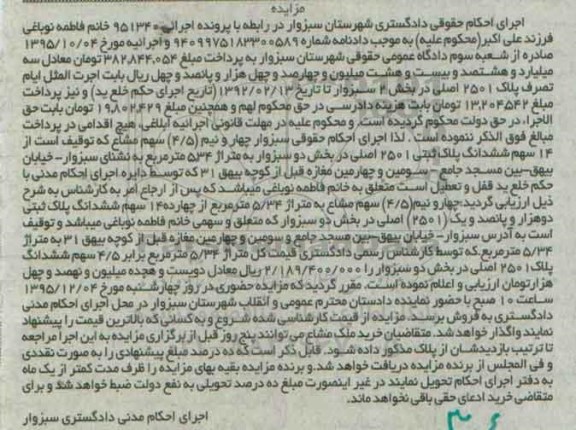 مزایده
اجرای احکام حقوقی دادگستری شهرستان سبزوار در رابطه با پرونده اجرائی ۹۵۱۳۴۰ خانم فاطمه نوباغی
فرزند علی اکبر(محکوم علیه) به موجب دادنامه شماره ۹۴۰۹۹۷۵۱۸۳۳۰۰۵۸۹ و اجرائیه مورخ ۱۳۹۵/۱۰/۰۴
صادره از شعبه سوم دادگاه عمومی حقوقی شهرستان سبزوار به پرداخت مبلغ ۳۸۲,۸۴۴,۰۵۴ تومان معادل سه
میلیارد و هشتصد و بیست و هشت میلیون و چهارصد و چهل هزار و پانصد و چهل ریال بابت اجرت المثل ایام
تصرف پلاک ۲۵۰۱ اصلی در بخش ۲ سبزوار تا تاریخ ۱۳۹۲/۰۲/۱۳ (تاریخ اجرای حکم خلع ید) و نیز پرداخت
مبلغ ۱۳,۲۰۴۵۴۲ تومان بابت هزینه دادرسی در حق محکوم لهم و همچنین مبلغ ۱۹,۸۰۲,۴۲۹ تومان بابت حق
الاجرا، در حق دولت محکوم گردیده است. و محکوم علیه در مهلت قانونی اجرائیه ابلاغی، هیچ اقدامی در پرداخت
مبالغ فوق الذکر ننموده است . لذا اجرای احکام حقوقی سبزوار چهار و نیم (۴/۵) سهم مشاع که توقیف است از
۱۴ سهم ششدانگ پلاک ثبتی ۲۵۰۱ اصلی در بخش دو سبزوار به متراژ ۵۳۴ مترمربع به نشانی سبزوار- خیابان
بیهق-بین مسجد جامع -سومین و چهارمین مغازه قبل از کوچه بیهق ۳۱ که توسط دایره اجرای احکام مدنی با
حکم خلع ید قفل و تعطیل است متعلق به خانم فاطمه نوباغی میباشد که پس از ارجاع امر به کارشناس به شرح
ذیل ارزیابی گردید:چهار و نیم(۴/۵) سهم مشاع به متراژ ۵/۳۴ مترمربع از چهارده۱۴ سهم ششدانگ پلاک ثبتی
دوهزار و پانصد و یک (۲۵۰۱) اصلی در بخش دو سبزوار که متعلق و سهمی خانم فاطمه نوباغی میباشد و توقیف
است به آدرس سبزوار- خیابان بیهق-بین مسجد جامع و سومین و چهارمین مغازه قبل از کوچه بیهق ۳۱ به متراژ
۵/۳۴ مترمربع.که توسط کارشناس رسمی دادگستری قیمت کل متراژ ۵/۳۴ مترمربع برابر ۴/۵ سهم ششدانگ
پلاک۲۵۰۱ اصلی در بخش دو سبزوار را ۲/۱۸۹/۴۰۰/۰۰۰ ریال معادل دویست و هجده میلیون و نهصد و چهل
هزارتومان ارزیابی و اعلام نموده است. مقرر گردید که مزایده حضوری در روز چهارشنبه مورخ ۱۳۹۵/۱۲/۰۴
ساعت ۱۰ صبح با حضور نماینده دادستان محترم عمومی و انقلاب شهرستان سبزوار در محل اجرای احکام مدنی
دادگستری به فروش برسد. مزایده از قیمت کارشناسی شده شروع و به کسانی که بالاترین قیمت را پیشنهاد
نمایند واگذار خواهد شد. متقاضیان خرید ملک مشاع می توانند پنج روز قبل از برگزاری مزایده به این اجرا مراجعه
تا ترتیب بازدیدشان از پلاک مذکور داده شود. قابل ذکر است که ده درصد مبلغ پیشنهادی را به صورت نقددی
و فی المجلس از برنده مزایده دریافت خواهد شد.و برنده مزایده بقیه بهای مزایده را ظرف مدت کمتر از یک ماه
به دفتر اجرای احکام تحویل نمایند در غیر اینصورت مبلغ ده درصد تحویلی به نفع دولت ضبط خواهد شد و برای
متقاضی خرید ادعای حقی باقی نخواهد ماند.
اجرای احکام مدنی دادگستری سبزوار